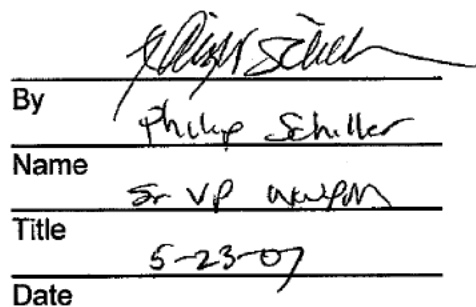 By
Philip Schiller
Name
Sr VP
Title
5-23-07
Date